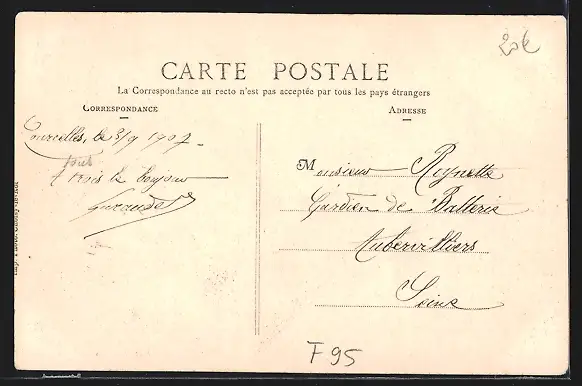 20€
CARTE POSTALE
La Correspondance au recto n'est pas acceptée par tous les pays étrangers
CORRESPONDANCE
ADRESSE
Courcelles, le 3/9 1907
tous
trois le bonjour
Monsieur Roynette
Gardien de Batterie
Aubervilliers
Seine
F95